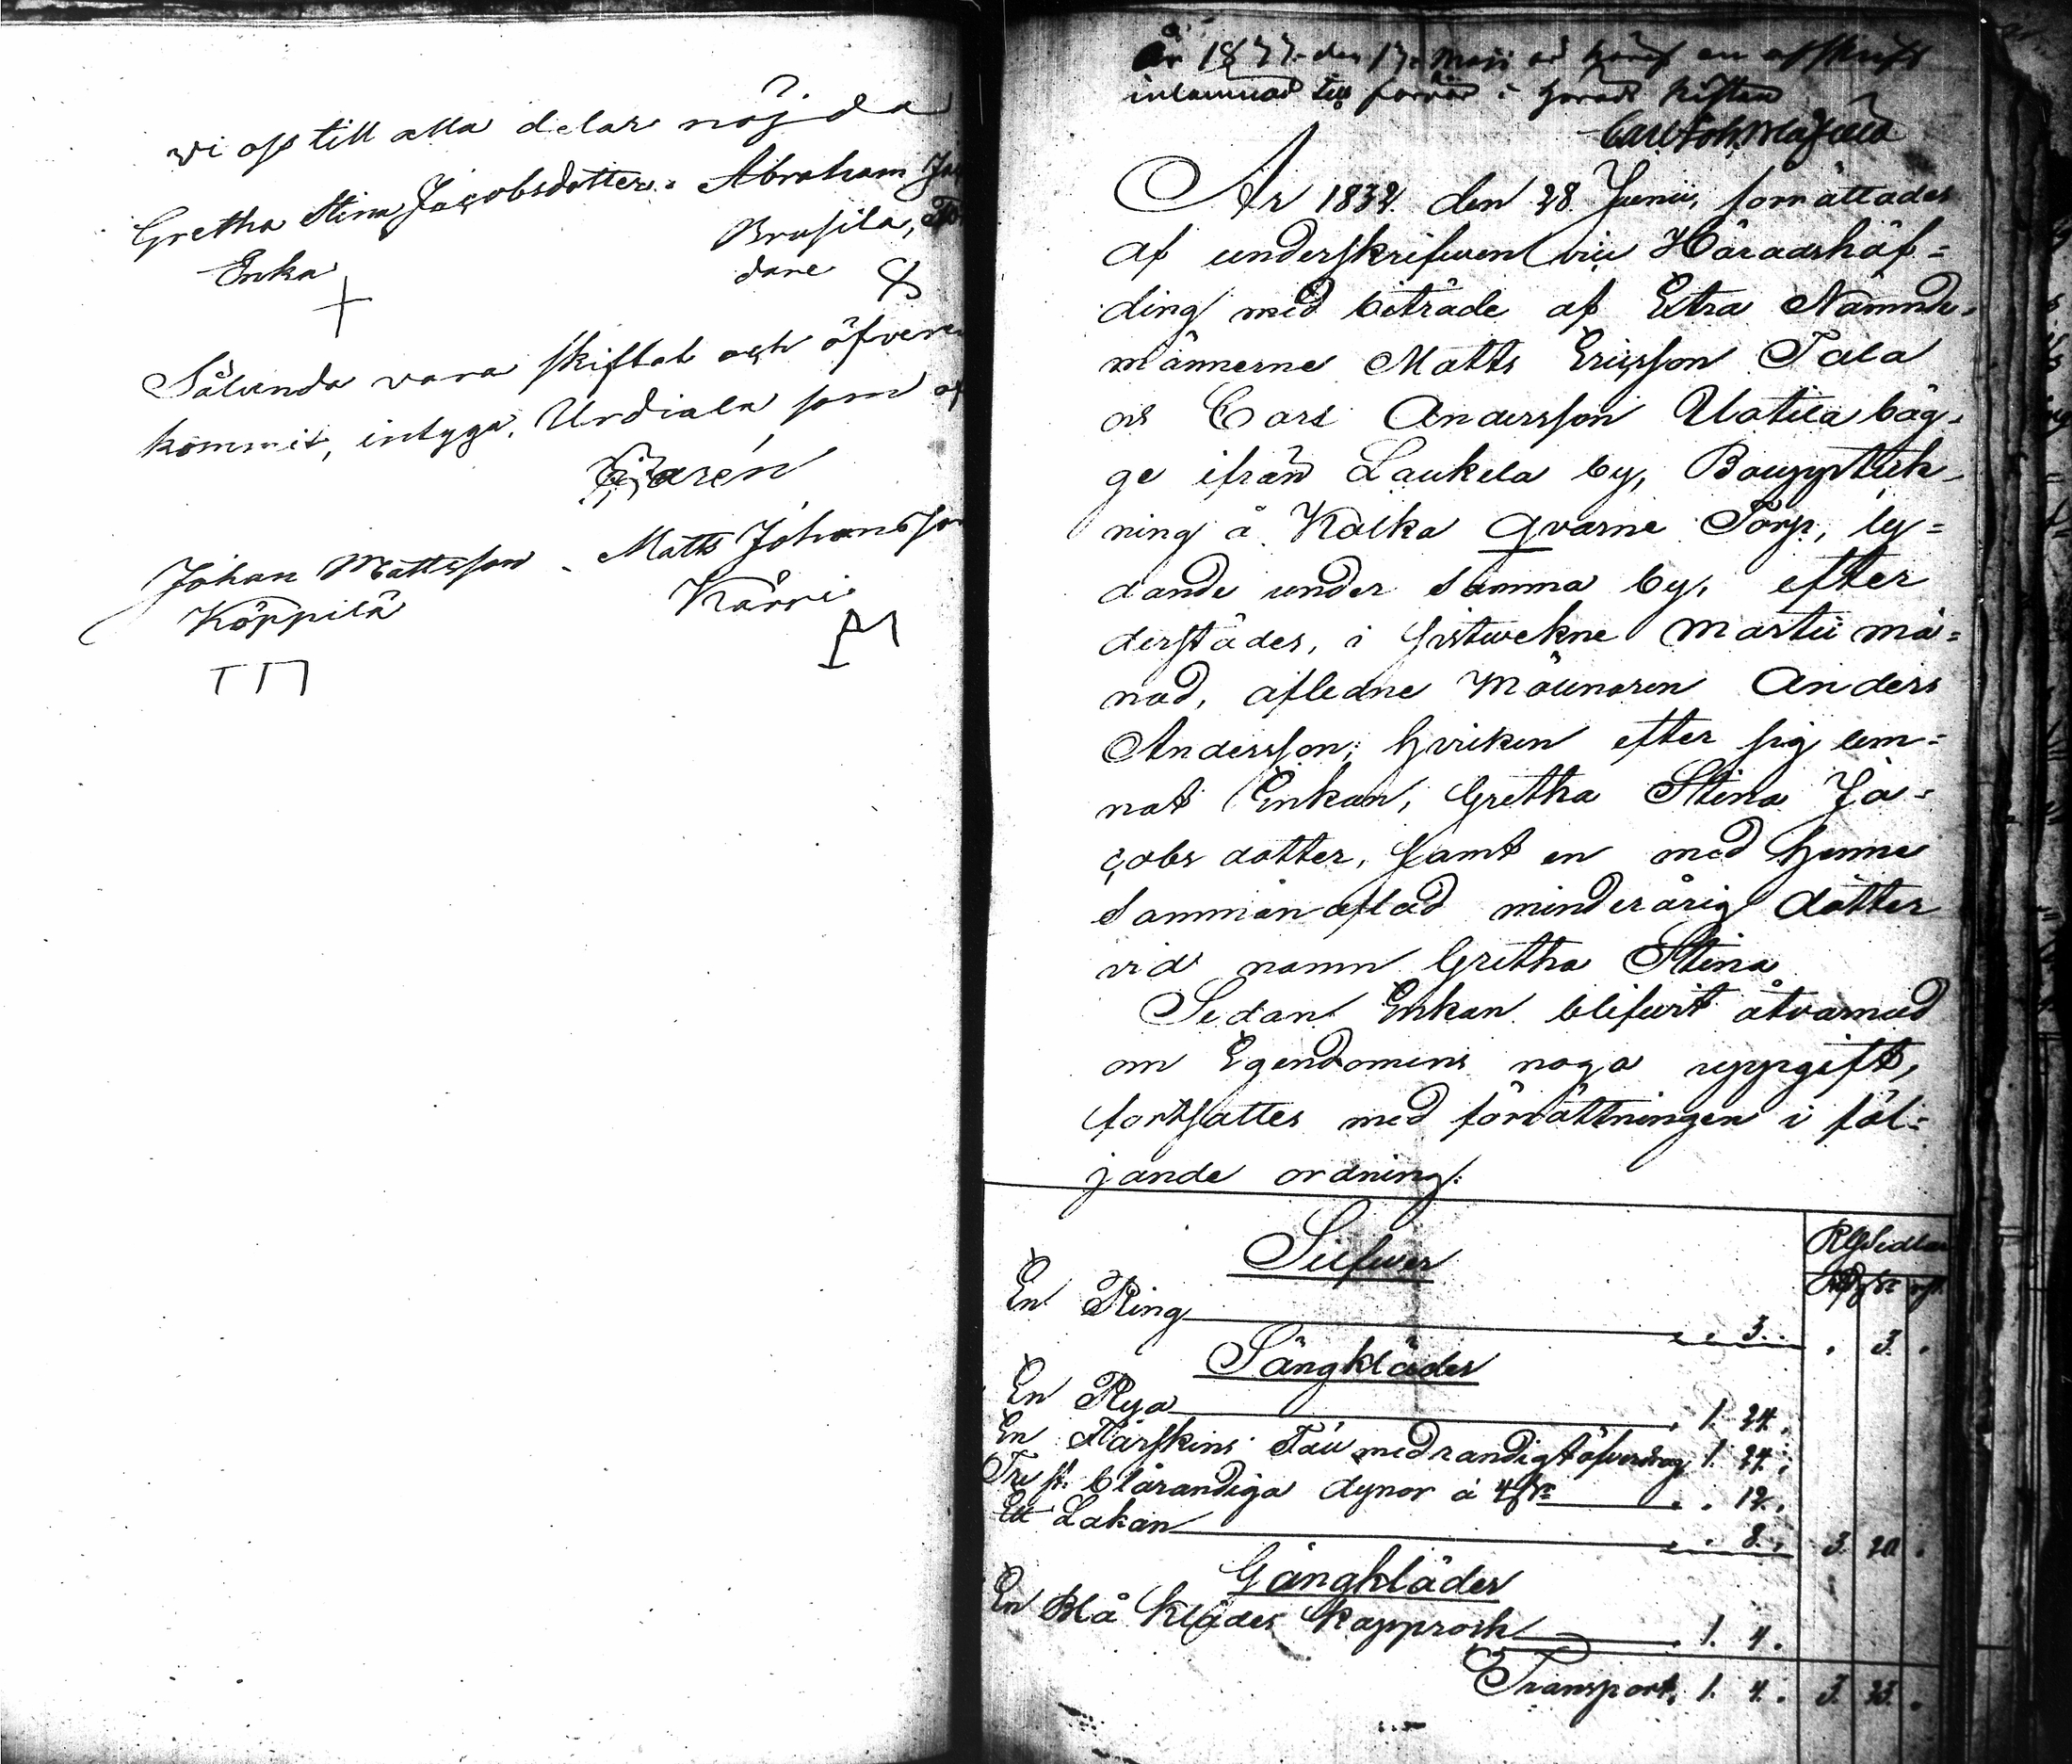 vi oss till alla delar nöjda
Gretha Stina Jacobsdotter. Abraham
Enka Brusila,
dane
Sålunda vara skiftat och öfverens
kommit, intyga. Urdiala som
Johan Mattsson Matts Johansson
Köppilä Kärri
År 1877 den 17. Maji är häraf en afskrift
inlämnad till förvar i Härads kistan
År 1832. den 28. Junii, förrättades
af underskrifwen vice Häradshöf=
ding med biträde af Extra Nämnde=
männerne Matts Ericsson Tala
och Carl Andersson Uotila båg=
ge ifrån Laukela by, Boupptek=
ning å Kolka Qvarne Torp, ly=
dande under samma by, efter
derstädes, i sistwekne Martii må=
nad, aflidne Mölnaren Anders
Andersson; hvilken efter sig lem=
nat Enkan, Gretha Stina Ja=
cobs dotter, samt en med henne
sammanaflad minderårig dotter
vid namn Gretha Stina
Sedan Enkan blifwit åtvarnad
om Egendomens noga uppgift,
fortsattes med förrättningen i föl=
jande ordning:
Silfwer
En Ring 3. . 3.
Sängkläder
En Rya 1. 24.
En Fårskins Fäll med randigt öfverdrag 1. 24.
Tre st. blårandiga dynor á 4 sk. 12.
Ett Lakan 8. 3. 20.
Gångkläder
En Blå Klädes Kapprock 1. 4.
Transport. 1. 4. 3. 23.